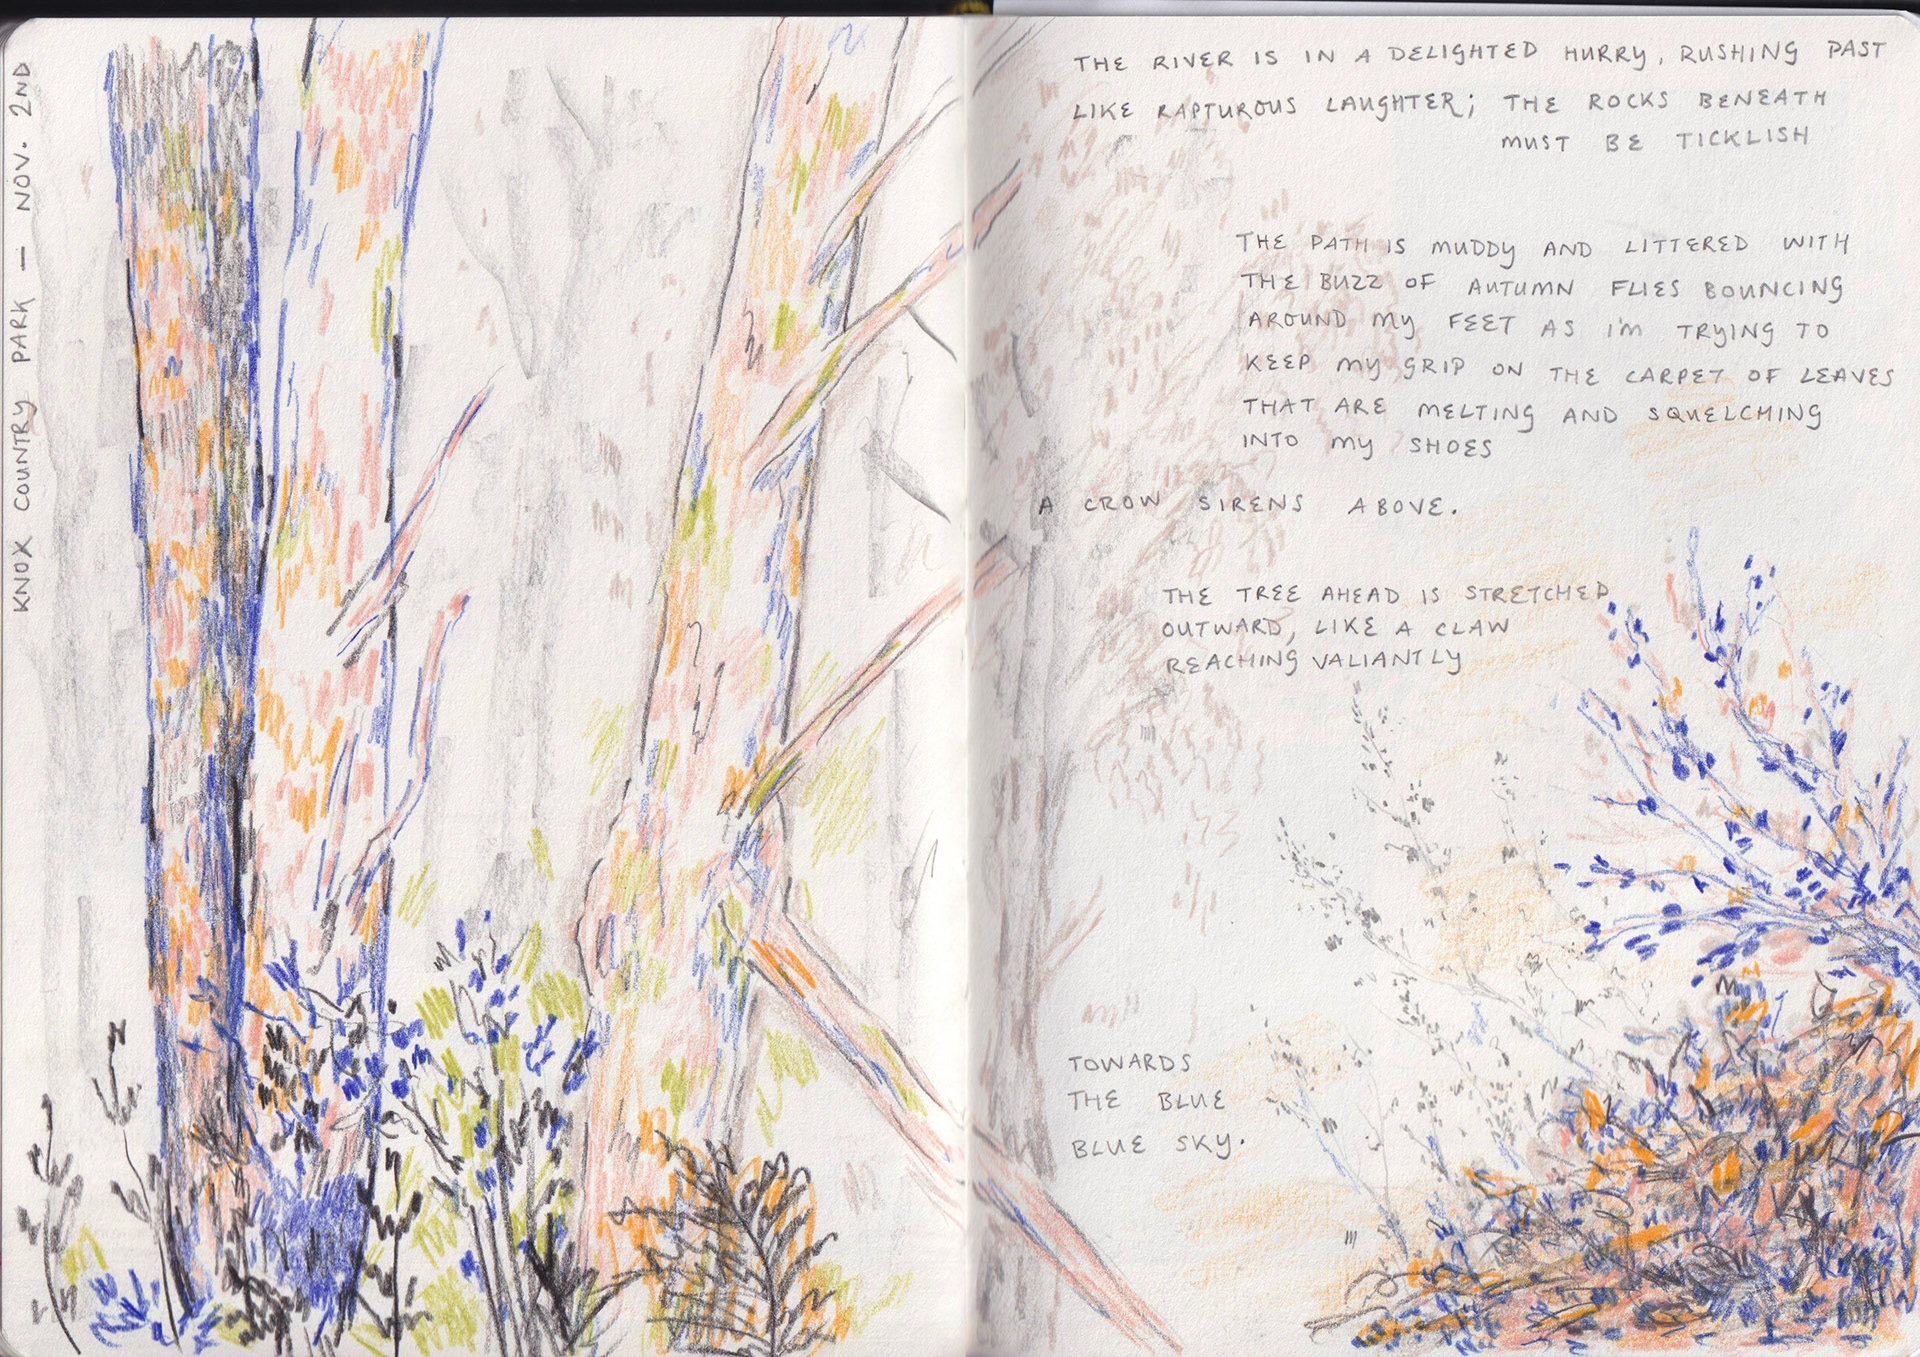 KNOX COUNTRY PARK — NOV. 2ND
THE RIVER IS IN A DELIGHTED HURRY, RUSHING PAST
LIKE RAPTUROUS LAUGHTER; THE ROCKS BENEATH
MUST BE TICKLISH
THE PATH IS MUDDY AND LITTERED WITH
THE BUZZ OF AUTUMN FLIES BOUNCING
AROUND MY FEET AS I'M TRYING TO
KEEP MY GRIP ON THE CARPET OF LEAVES
THAT ARE MELTING AND SQUELCHING
INTO MY SHOES
A CROW SIRENS ABOVE.
THE TREE AHEAD IS STRETCHED
OUTWARD, LIKE A CLAW
REACHING VALIANTLY
TOWARDS
THE BLUE
BLUE SKY.